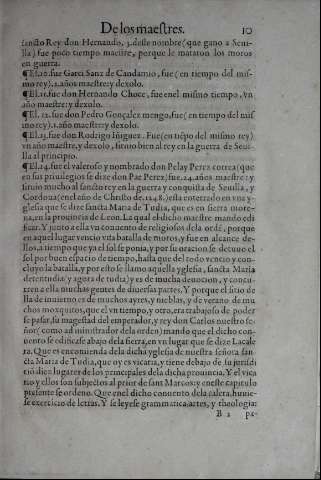 De los maestres. 10
sancto Rey don Hernando, 3. deste nombre (que gano a Seui-
lla) fue poco tiempo maestre, porque le mataron los moros
en guerra.
¶ El .10. fue Garci Sanz de Candamio, fue (en tiempo del mis-
mo rey) .2. años maestre: y dexolo.
¶ El .11. fue don Hernando Choce, fue en el mismo tiempo, vn
año maestre: y dexolo.
¶ El .12. fue don Pedro Gonçalez mengo, fue (en tiempo del mis
mo rey) .2. años maestre: y dexolo.
¶ El .13. fue don Rodrigo Iñiguez. Fue (en tiẽpo del mismo rey)
vn año maestre, y dexolo, siruio bien al rey en la guerra de Seui-
lla al principio.
¶ El .14. fue el valeroso y nombrado don Pelay Perez correa (que
en sus priuilegios se dize don Pae Perez) fue .24. años maestre: y
siruio mucho al sancto rey en la guerra y conquista de Seuilla, y
Cordoua (en el año de Christo de .1248.) esta enterrado en vna y-
glesia que se dize sancta Maria de Tudia, que es en sierra more-
na, en la prouincia de Leon. La qual el dicho maestre mando edi
ficar. Y junto a ella vn conuento de religiosos de la ordẽ, porque
en aquel lugar vencio vna batalla de moros, y fue en alcance de-
llos, a tiempo que ya el sol se ponia, y por su oracion se detuuo el
sol por buen espacio de tiempo, hasta que del todo vencio y con-
cluyo la batalla, y por esto se llamo aquella yglesia, sancta Maria
detentudia (y agora de tudia) y es de mucha deuocion, y concu-
rren a ella muchas gentes de diuersas partes. Y porque el sitio de
lla de inuierno es de muchos ayres, y nieblas, y de verano de mu
chos moxquitos, que el vn tiempo, y otro, era trabajoso de poder
se passar, su magestad del emperador, y rey don Carlos nuestro se-
ñor (como administrador de la orden) mando que el dicho con-
uento se edificasse abajo de la sierra, en vn lugar que se dize Lacale
ra. Que es encomienda de la dicha yglesia de nuestra señora san-
cta Maria de Tudia, que oy es vicaria, y tiene debajo de su juridi
ctiõ diez lugares de los principales de la dicha prouincia. Y el vica
rio y ellos son subjectos al prior de sant Marcos: y en este capitulo
presente se ordeno. Que en el dicho conuento de la calera, huuie-
se exercicio de letras. Y se leyese grammatica, artes, y theologia:
B 2 pa-